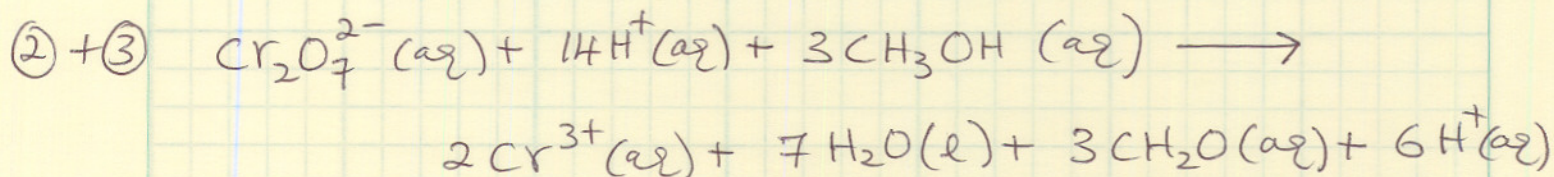 ② + ③ Cr₂O₇²⁻ (aq) + 14H⁺(aq) + 3CH₃OH (aq) ⟶
2Cr³⁺(aq) + 7H₂O(l) + 3CH₂O(aq) + 6H⁺(aq)